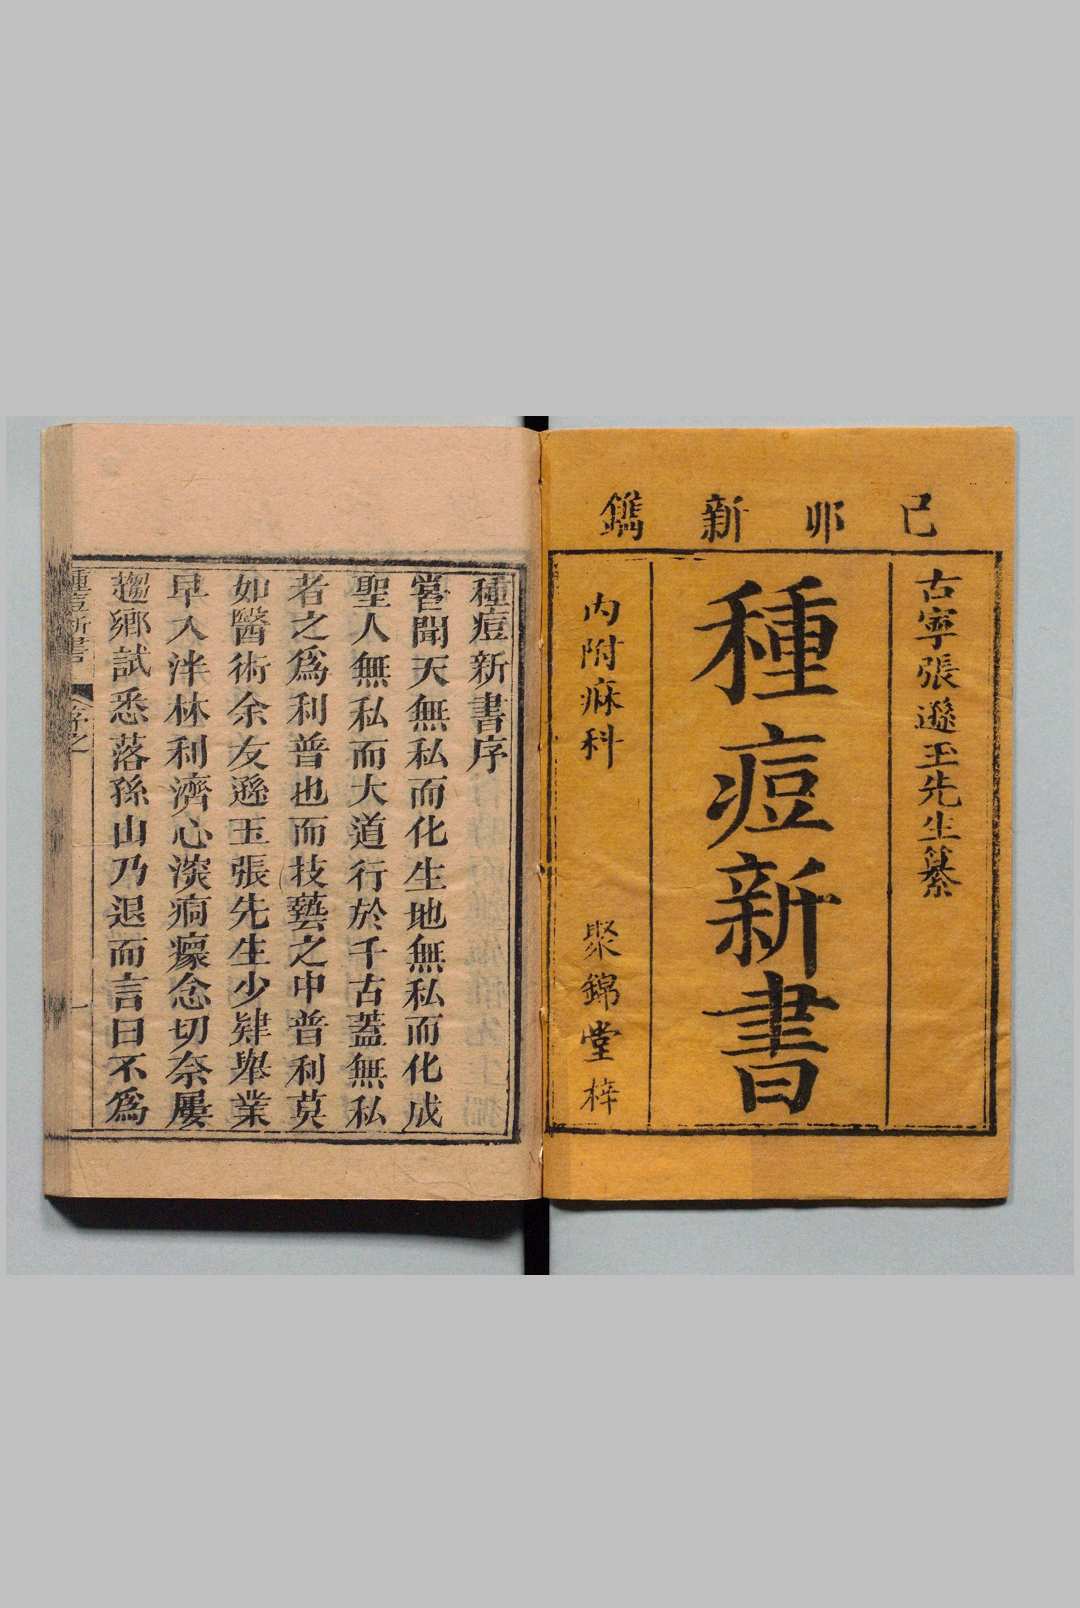 己卯新鐫
古寧張遜玉先生纂
種痘新書
內附痳科
聚錦堂梓
種痘新書序
嘗聞天無私而化生地無私而化成
聖人無私而大道行於千古蓋無私
者之爲利普也而技藝之中普利莫
如醫術余友遜玉張先生少肄舉業
早入泮林利濟心深痌瘝念切奈屢
趨鄉試悉落孫山乃退而言曰不爲
種痘新書 序 一